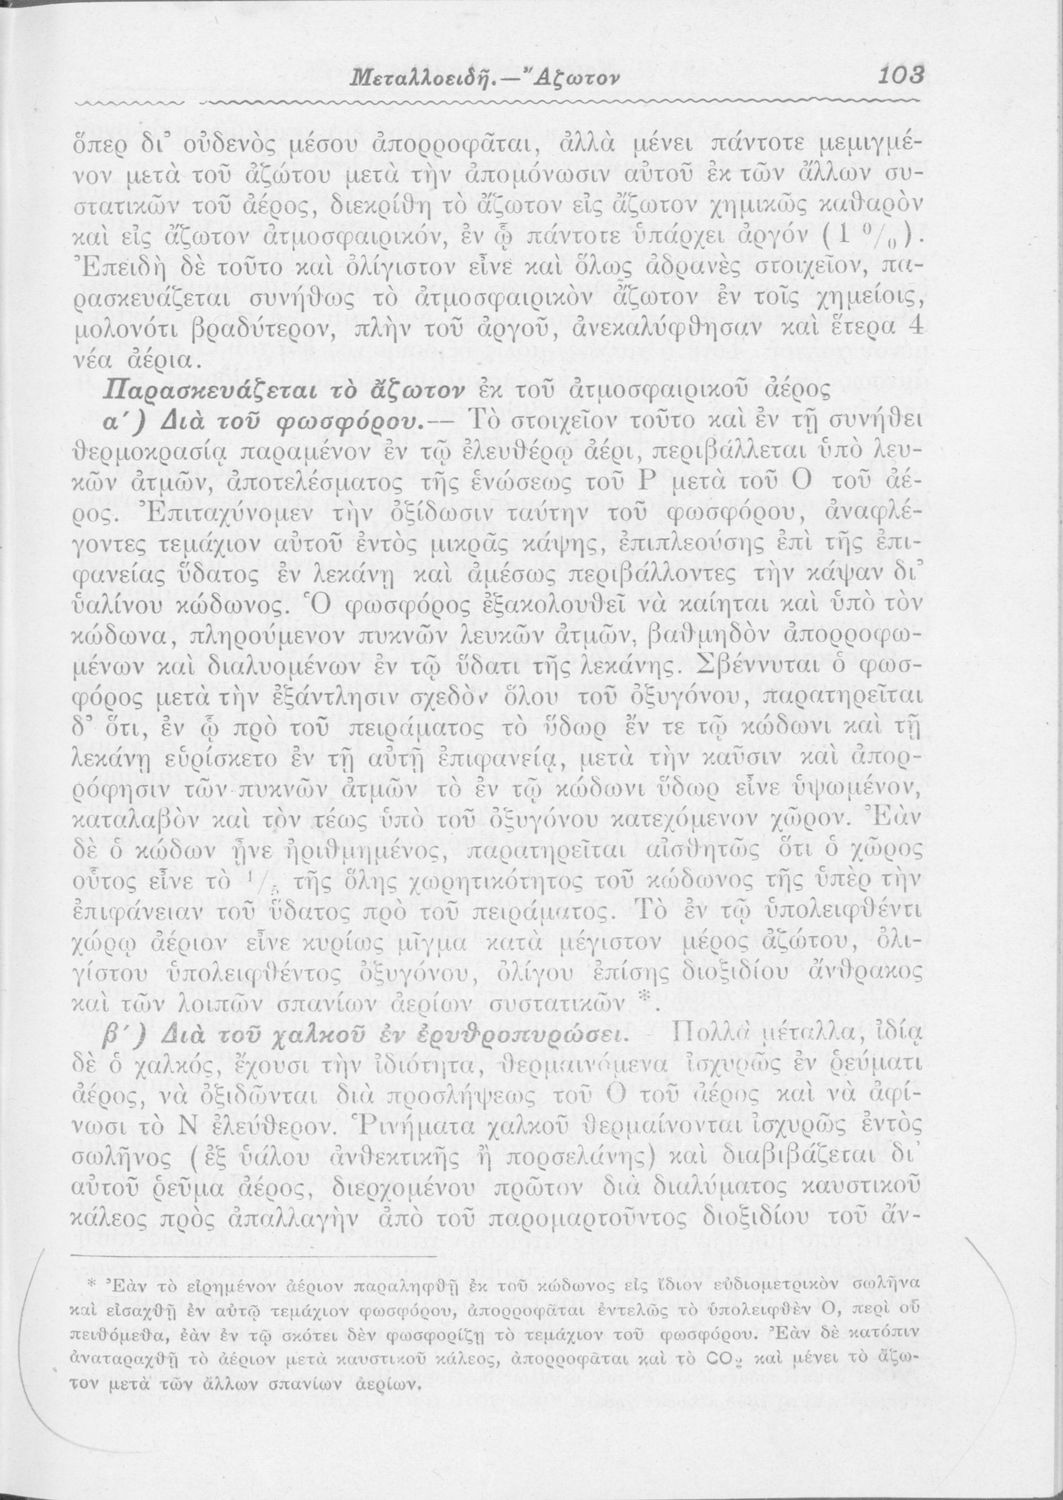 Μεταλλοειδῆ.—Ἄζωτον 103
ὅπερ δι᾽ οὐδενὸς μέσου ἀπορροφᾶται, ἀλλὰ μένει πάντοτε μεμιγμέ-
νον μετὰ τοῦ ἀζώτου μετὰ τὴν ἀπομόνωσιν αὐτοῦ ἐκ τῶν ἄλλων συ-
στατικῶν τοῦ ἀέρος, διεκρίθη τὸ ἄζωτον εἰς ἄζωτον χημικῶς καθαρὸν
καὶ εἰς ἄζωτον ἀτμοσφαιρικόν, ἐν ᾧ πάντοτε ὑπάρχει ἀργόν (1 %).
Ἐπειδὴ δὲ τοῦτο καὶ ὀλίγιστον εἶνε καὶ ὅλως ἀδρανὲς στοιχεῖον, πα-
ρασκευάζεται συνήθως τὸ ἀτμοσφαιρικὸν ἄζωτον ἐν τοῖς χημείοις,
μολονότι βραδύτερον, πλὴν τοῦ ἀργοῦ, ἀνεκαλύφθησαν καὶ ἕτερα 4
νέα ἀέρια.
Παρασκευάζεται τὸ ἄζωτον ἐκ τοῦ ἀτμοσφαιρικοῦ ἀέρος
α΄) Διὰ τοῦ φωσφόρου.— Τὸ στοιχεῖον τοῦτο καὶ ἐν τῇ συνήθει
θερμοκρασίᾳ παραμένον ἐν τῷ ἐλευθέρῳ ἀέρι, περιβάλλεται ὑπὸ λευ-
κῶν ἀτμῶν, ἀποτελέσματος τῆς ἑνώσεως τοῦ P μετὰ τοῦ O τοῦ ἀέ-
ρος. Ἐπιταχύνομεν τὴν ὀξίδωσιν ταύτην τοῦ φωσφόρου, ἀναφλέ-
γοντες τεμάχιον αὐτοῦ ἐντὸς μικρᾶς κάψης, ἐπιπλεούσης ἐπὶ τῆς ἐπι-
φανείας ὕδατος ἐν λεκάνῃ καὶ ἀμέσως περιβάλλοντες τὴν κάψαν δι᾽
ὑαλίνου κώδωνος. Ὁ φωσφόρος ἐξακολουθεῖ νὰ καίηται καὶ ὑπὸ τὸν
κώδωνα, πληρούμενον πυκνῶν λευκῶν ἀτμῶν, βαθμηδὸν ἀπορροφω-
μένων καὶ διαλυομένων ἐν τῷ ὕδατι τῆς λεκάνης. Σβέννυται ὁ φωσ-
φόρος μετὰ τὴν ἐξάντλησιν σχεδὸν ὅλου τοῦ ὀξυγόνου, παρατηρεῖται
δ᾽ ὅτι, ἐν ᾧ πρὸ τοῦ πειράματος τὸ ὕδωρ ἔν τε τῷ κώδωνι καὶ τῇ
λεκάνῃ εὑρίσκετο ἐν τῇ αὐτῇ ἐπιφανείᾳ, μετὰ τὴν καῦσιν καὶ ἀπορ-
ρόφησιν τῶν πυκνῶν ἀτμῶν τὸ ἐν τῷ κώδωνι ὕδωρ εἶνε ὑψωμένον,
καταλαβὸν καὶ τὸν τέως ὑπὸ τοῦ ὀξυγόνου κατεχόμενον χῶρον. Ἐὰν
δὲ ὁ κώδων ἦνε ἠριθμημένος, παρατηρεῖται αἰσθητῶς ὅτι ὁ χῶρος
οὗτος εἶνε τὸ 1/5 τῆς ὅλης χωρητικότητος τοῦ κώδωνος τῆς ὑπὲρ τὴν
ἐπιφάνειαν τοῦ ὕδατος πρὸ τοῦ πειράματος. Τὸ ἐν τῷ ὑπολειφθέντι
χώρῳ ἀέριον εἶνε κυρίως μῖγμα κατὰ μέγιστον μέρος ἀζώτου, ὀλι-
γίστου ὑπολειφθέντος ὀξυγόνου, ὀλίγου ἐπίσης διοξιδίου ἄνθρακος
καὶ τῶν λοιπῶν σπανίων ἀερίων συστατικῶν *.
β΄) Διὰ τοῦ χαλκοῦ ἐν ἐρυθροπυρώσει. Πολλὰ μέταλλα, ἰδίᾳ
δὲ ὁ χαλκός, ἔχουσι τὴν ἰδιότητα, θερμαινόμενα ἰσχυρῶς ἐν ῥεύματι
ἀέρος, νὰ ὀξιδῶνται διὰ προσλήψεως τοῦ O τοῦ ἀέρος καὶ νὰ ἀφί-
νωσι τὸ N ἐλεύθερον. Ῥινήματα χαλκοῦ θερμαίνονται ἰσχυρῶς ἐντὸς
σωλῆνος (ἐξ ὑάλου ἀνθεκτικῆς ἢ πορσελάνης) καὶ διαβιβάζεται δι᾽
αὐτοῦ ῥεῦμα ἀέρος, διερχομένου πρῶτον διὰ διαλύματος καυστικοῦ
κάλεος πρὸς ἀπαλλαγὴν ἀπὸ τοῦ παρομαρτοῦντος διοξιδίου τοῦ ἄν-
* Ἐὰν τὸ εἰρημένον ἀέριον παραληφθῇ ἐκ τοῦ κώδωνος εἰς ἴδιον εὐδιομετρικὸν σωλῆνα
καὶ εἰσαχθῇ ἐν αὐτῷ τεμάχιον φωσφόρου, ἀπορροφᾶται ἐντελῶς τὸ ὑπολειφθὲν O, περὶ οὗ
πειθόμεθα, ἐὰν ἐν τῷ σκότει δὲν φωσφορίζῃ τὸ τεμάχιον τοῦ φωσφόρου. Ἐὰν δὲ κατόπιν
ἀναταραχθῇ τὸ ἀέριον μετὰ καυστικοῦ κάλεος, ἀπορροφᾶται καὶ τὸ CO₂ καὶ μένει τὸ ἄζω-
τον μετὰ τῶν ἄλλων σπανίων ἀερίων.